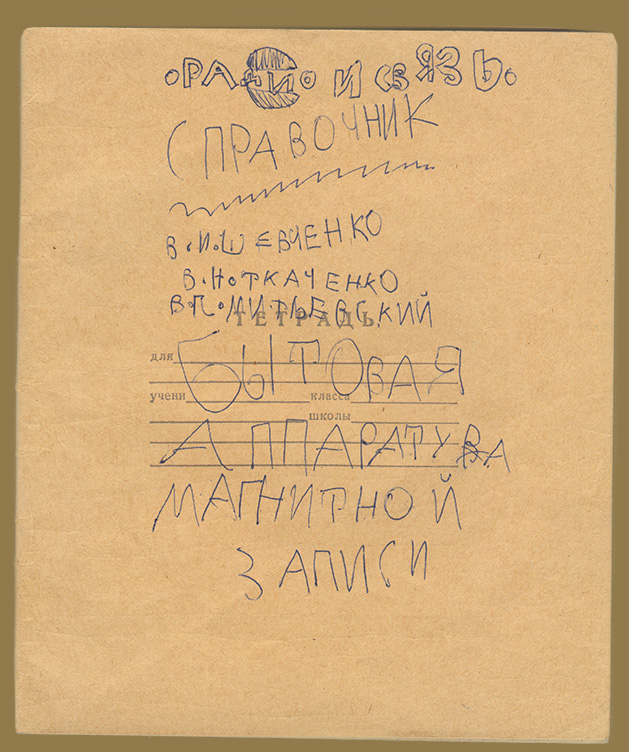 •РАДИО И СВЯЗЬ•
СПРАВОЧНИК
В.И.ШЕВЧЕНКО
В.Н.ТКАЧЕНКО
В.П.МИТЬЕВСКИЙ
ТЕТРАДЬ
для БЫТОВАЯ
учени класса
школы
АППАРАТУРА
МАГНИТНОЙ
ЗАПИСИ